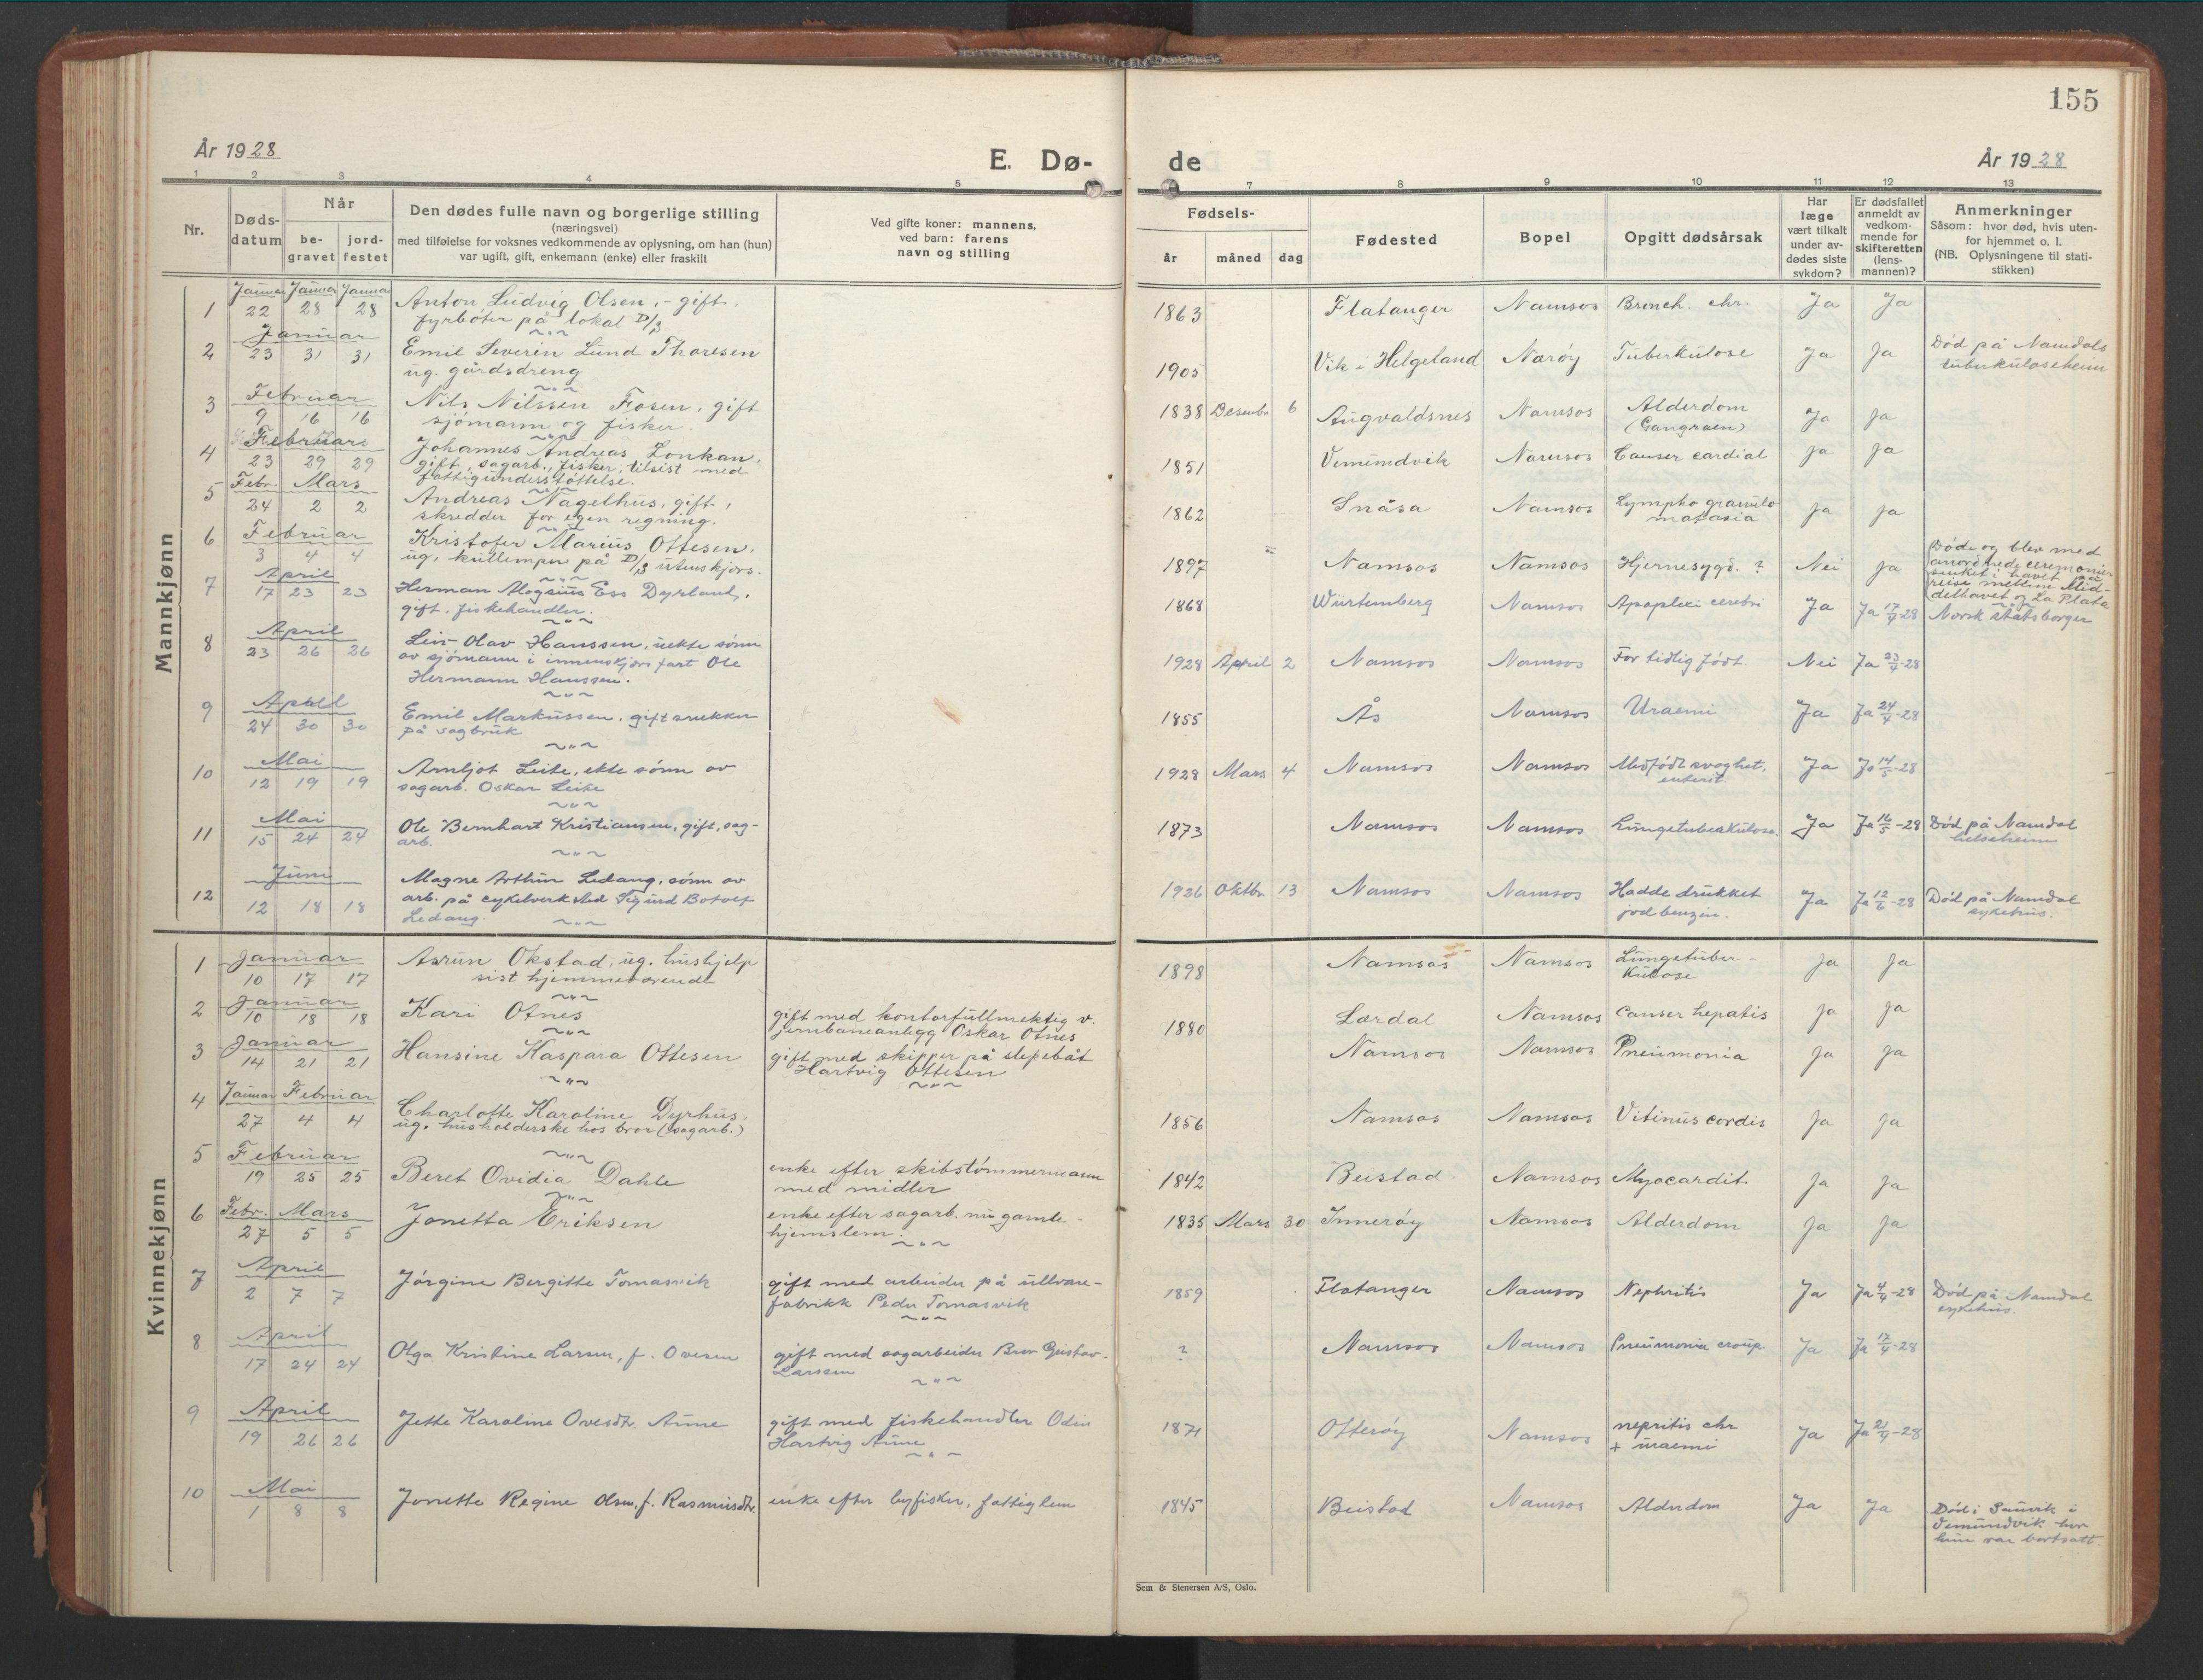 155
År 1928
E. Dø-
de
År 1928
1 2 3 4 5 7 8 9 10 11 12 13
Nr.
Døds-
datum
Når
be-
gravet
jord-
festet
Den dødes fulle navn og borgerlige stilling
(næringsvei)
med tilføielse for voksnes vedkommende av oplysning, om han (hun)
var ugift, gift, enkemann (enke) eller fraskilt
Ved gifte koner: mannens,
ved barn: farens
navn og stilling
Fødsels-
år måned dag
Fødested
Bopel
Opgitt dødsårsak
Har
læge
vært tilkalt
under av-
dødes siste
sykdom?
Er dødsfallet
anmeldt av
vedkom-
mende for
skifteretten
(lens-
mannen)?
Anmerkninger
Såsom: hvor død, hvis uten-
for hjemmet o. l.
(NB. Oplysningene til stati-
stikken)
Mannkjønn
Januar Januar Januar
1 22 28 28 Anton Ludvig Olsen, - gift, 1863 Flatanger Namsos Bronch. chr. Ja Ja
fyrbøter på lokal D/S
Januar
2 23 31 31 Emil Severin Lund Thoresen 1905 Vik i Helgeland Nærøy Tuberkulose Ja Ja Død på Namdals
ug. gårdsdreng tuberkuloseheim
Februar
3 9 16 16 Nils Nilssen Fosen, gift 1838 Desembr 6 Augvaldsnes Namsos Alderdom Ja Ja
sjømann og fisker. (Gangraen)
Februar
4 23 29 29 Johannes Andreas Lonkan, 1851 Vemundvik Namsos Canser cardial Ja Ja
gift, sagarb., fisker, tilsist med
fattigunderstøttelse.
Febr. Mars
5 24 2 2 Andreas Nagelhus, gift, 1862 Snåsa Namsos Lympho granulo Ja Ja
skredder for egen regning.
Februar
6 3 4 4 Kristofer Marius Ottesen, 1897 Namsos Namsos Hjernesygd. ? Nei Ja Døde og blev med
ug, kullemper på D/S utenskjærs. anordnede ceremonier
senket i havet på
reise mellem Mid-
delhavet og La Plata
April
7 17 23 23 Herman Aloysius Ess Dyrland, 1868 Würtemberg Namsos Apoplexi cerebri Ja Ja 17/4-28 Norsk statsborger
gift, fiskehandler.
April
8 23 26 26 Leiv Olav Hanssen, uekte sønn 1928 April 2 Namsos Namsos For tidlig født. Nei Ja 23/4-28
av sjømann i innenskjærs fart Ole
Hermann Hanssen.
April
9 24 30 30 Emil Markussen, gift snekker 1855 Ås Namsos Uraemi Ja Ja 24/4-28
på sagbruk
Mai
10 12 19 19 Arnljot Leite, ekte sønn av 1928 Mars 4 Namsos Namsos Medfødt svaghet, Ja Ja 14/5-28
sagarb. Oskar Leite enterit.
Mai
11 15 24 24 Ole Bernhart Kristiansen, gift, sag- 1873 Namsos Namsos Lungetuberkulose. Ja Ja 16/5-28 Død på Namdal
arb. helseheim
Juni
12 12 18 18 Magne Arthur Ledang, sønn av 1926 Oktbr. 13 Namsos Namsos Hadde drukket Ja Ja 12/6-28 Død på Namdal
arb. på cykelverksted Sigurd Botolf jod benzin. sykehus.
Ledang.
Kvinnekjønn
Januar
1 10 17 17 Asrun Okstad, ug. hushjelp 1898 Namsos Namsos Lungetuber- Ja Ja
sist hjemmeværende kulose
Januar
2 10 18 18 Kari Otnes gift med kontorfullmektig v. 1880 Lærdal Namsos Canser hepatis Ja Ja
jernbaneanlegg Oskar Otnes
Januar
3 14 21 21 Hansine Kaspara Ottesen gift med skipper på slepebåt Namsos Namsos Pneumonia Ja Ja
Hartvig Ottesen
Januar Februar
4 27 4 4 Charlotte Karoline Dyrhus, 1856 Namsos Namsos Vitinus cordis Ja Ja
ug. husholderske hos bror (sagarb.)
Februar
5 19 25 25 Beret Ovidia Dahle enke efter skibstømmermann 1842 Beistad Namsos Myocardit Ja Ja
med midler
Febr. Mars
6 27 5 5 Jonetta Eriksen enke efter sagarb. nu gamle- 1835 Mars 30 Innerøy Namsos Alderdom Ja Ja
hjemslem.
April
7 2 7 7 Jørgine Bergitte Tomasvik gift med arbeider på ullvare- 1859 Flatanger Namsos Nephritis Ja Ja 4/4-28 Død på Namdal
fabrikk Peder Tomasvik sykehus.
April
8 17 24 24 Olga Kristine Larsen, f. Ovesen gift med sagarbeider Bror Gustav ? Namsos Namsos Pneumonia croup. Ja Ja 17/4-28
Larssen
April
9 19 26 26 Jette Karoline Ovesdtr. Aune gift med fiskehandler Odin 1871 Otterøy Namsos nepritis chr Ja Ja 21/4-28
Hartvig Aune + uraemi
Mai
10 1 8 8 Jonette Regine Olsen, f. Rasmusdtr. enke efter byfisker, fattiglem 1845 Beistad Namsos Alderdom Ja Ja Død i Sauvik i
Vemundvik hvor
hun var bortsatt.
Sem & Stenersen A/S, Oslo.